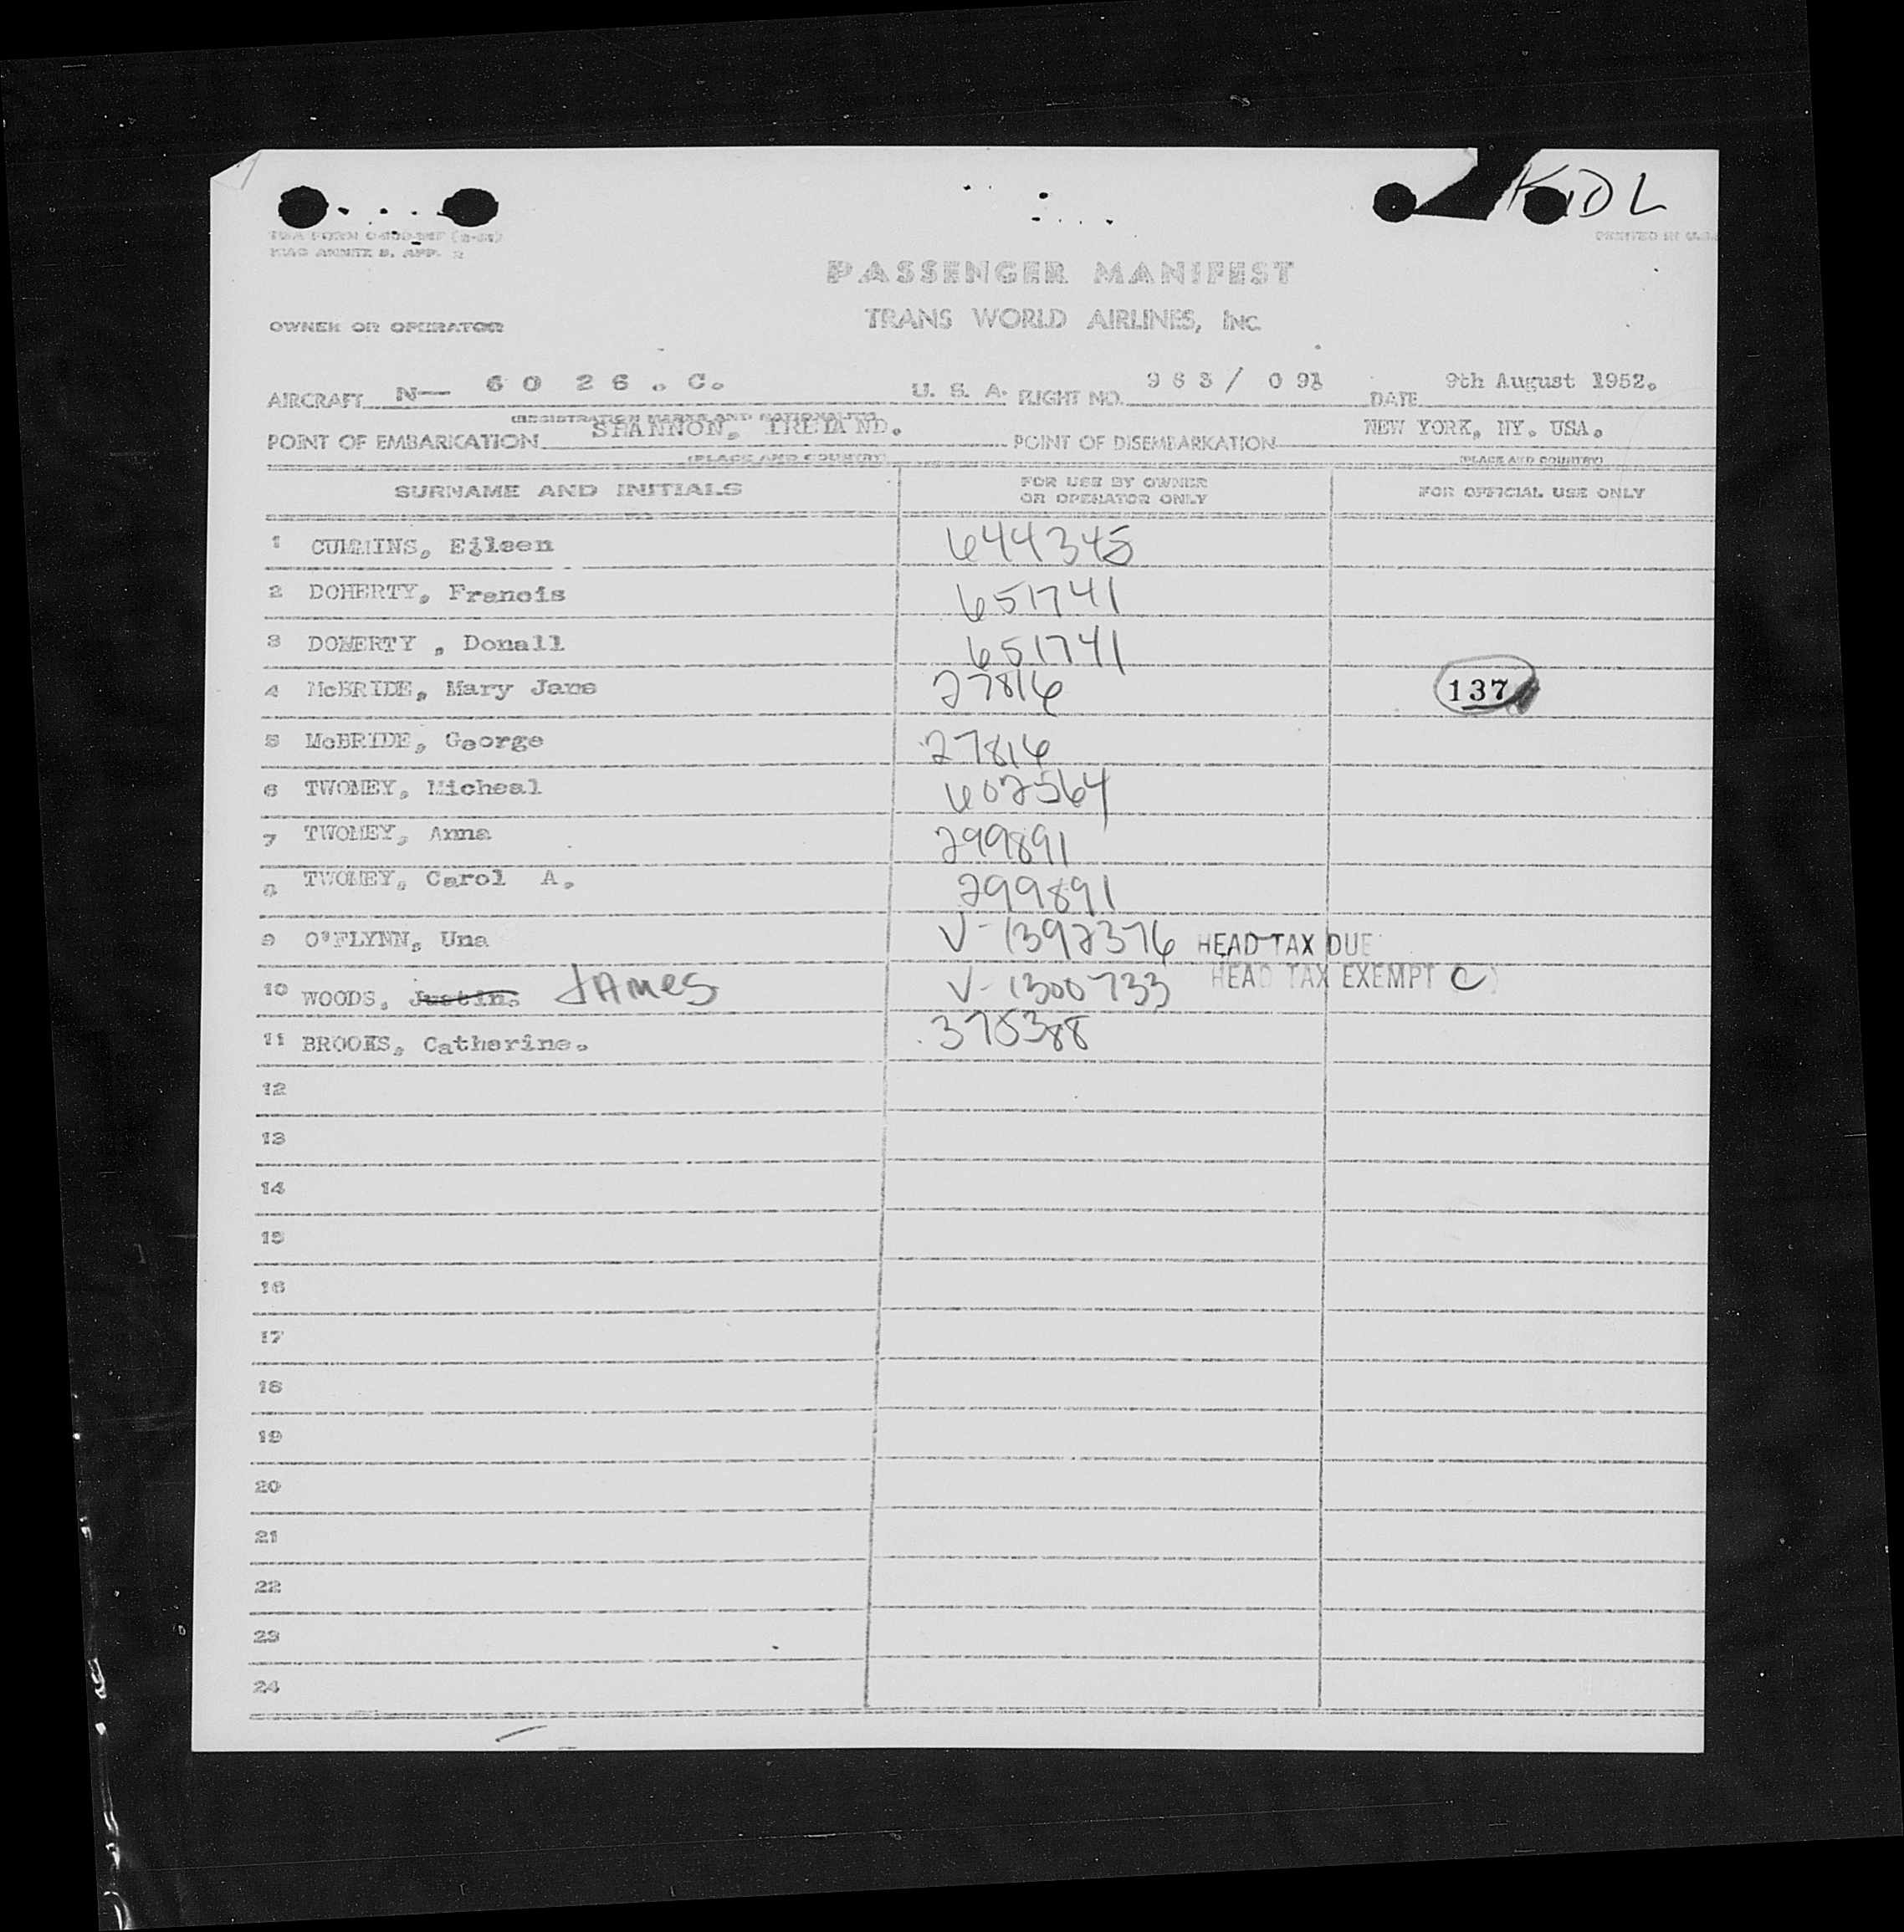 KIDL
ICAO ANNEX 9, APP. 2
PRINTED IN U.S.
PASSENGER MANIFEST
OWNER OR OPERATOR TRANS WORLD AIRLINES, INC.
AIRCRAFT N— 6 0 2 6 . C. U. S. A. FLIGHT NO. 963/ 091 DATE 9th August 1952.
(REGISTRATION MARKS AND NATIONALITY)
POINT OF EMBARKATION SHANNON, IRELAND. POINT OF DISEMBARKATION NEW YORK, NY. USA.
(PLACE AND COUNTRY) (PLACE AND COUNTRY)
SURNAME AND INITIALS FOR USE BY OWNER OR OPERATOR ONLY FOR OFFICIAL USE ONLY
1 CUMMINS, Eileen 644345
2 DOHERTY, Francis 651741
3 DOHERTY , Donall 651741
4 McBRIDE, Mary Jane 27816 137
5 McBRIDE, George 27816
6 TWOMEY, Micheal 602564
7 TWOMEY, Anna 299891
8 TWOMEY, Carol A. 299891
9 O'FLYNN, Una V-1392376 HEAD TAX DUE
10 WOODS, Justin. JAMES V-1300733 HEAD TAX EXEMPT C
11 BROOKS, Catherine. 375388
12
13
14
15
16
17
18
19
20
21
22
23
24